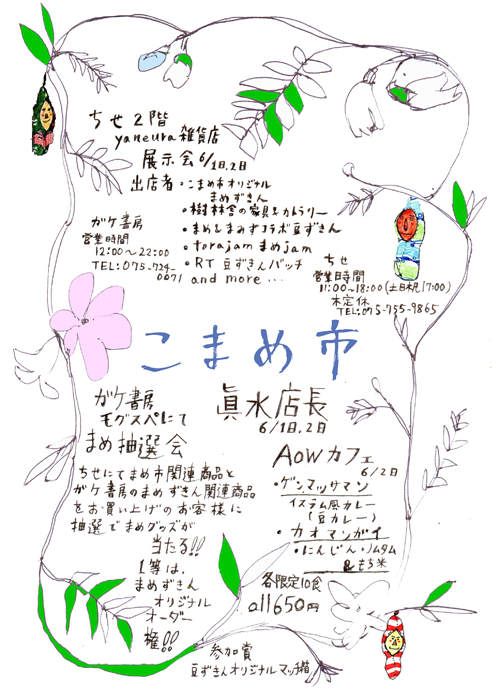 ちせ2階
yaneura雑貨店
展示会6/1日,2日
出店者・こまめ市オリジナル
まめずきん
・樹林舎の家具&カトラリー
・まめ&まみずコラボ豆ずきん
・torajam まめjam
・RT 豆ずきんバッチ
and more ...
ガケ書房
営業時間
12:00〜22:00
TEL:075-724-
0071
ちせ
営業時間
11:00〜18:00(土日祝17:00)
木定休
TEL:075-755-9865
こまめ市
ガケ書房
モグスペにて
まめ抽選会
ちせにてまめ市関連商品と
ガケ書房のまめずきん関連商品
をお買い上げのお客様に
抽選でまめグッズが
当たる!!
1等は、
まめずきん
オリジナル
オーダー
権!!
眞水店長
6/1日,2日
Aowカフェ
6/2日
・ゲンマッサマン
イスラム風カレー
(豆カレー)
・カオマンガイ
・にんじん・ソムタム
&もち米
各限定10食
all650円
参加賞
豆ずきんオリジナルマッチ箱